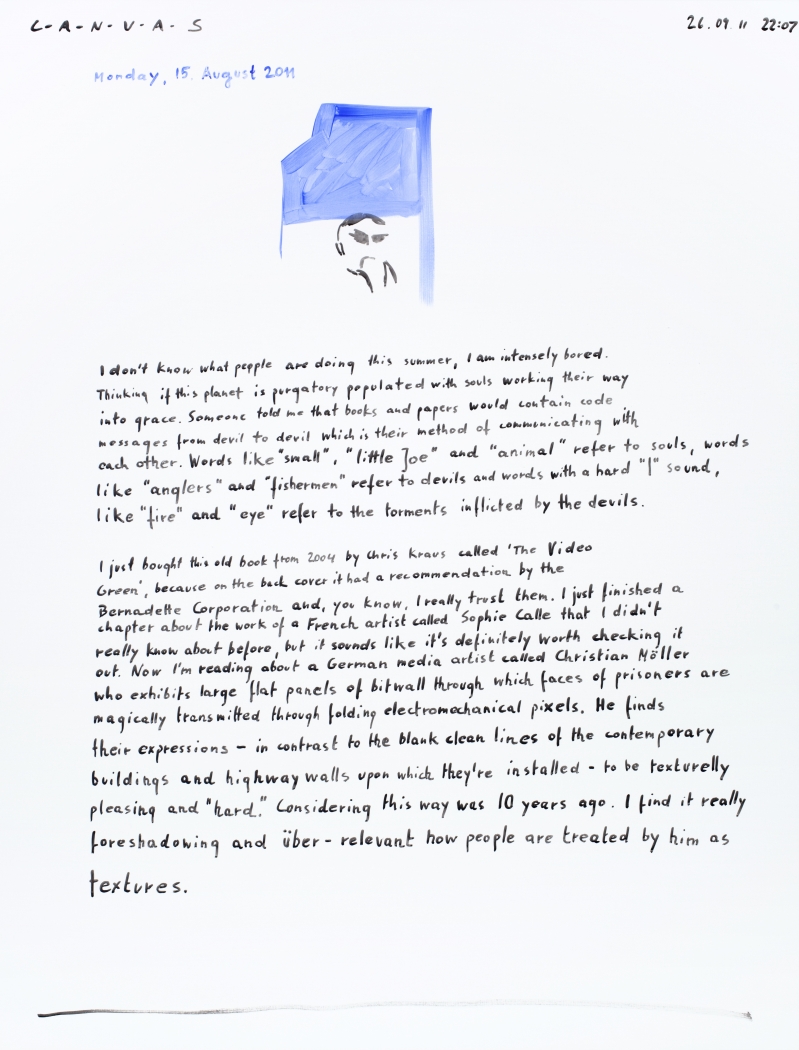 C-A-N-V-A-S
26.09.11 22:07
Monday, 15. August 2011
I don't know what people are doing this summer, I am intensely bored.
Thinking if this planet is purgatory populated with souls working their way
into grace. Someone told me that books and papers would contain code
messages from devil to devil which is their method of communicating with
each other. Words like "small", "little Joe" and "animal" refer to souls, words
like "anglers" and "fishermen" refer to devils and words with a hard "I" sound,
like "fire" and "eye" refer to the torments inflicted by the devils.
I just bought this old book from 2004 by Chris Kraus called 'The Video
Green', because on the back cover it had a recommendation by the
Bernadette Corporation and, you know, I really trust them. I just finished a
chapter about the work of a French artist called Sophie Calle that I didn't
really know about before, but it sounds like it's definitely worth checking it
out. Now I'm reading about a German media artist called Christian Möller
who exhibits large flat panels of bitwall through which faces of prisoners are
magically transmitted through folding electromechanical pixels. He finds
their expressions – in contrast to the blank clean lines of the contemporary
buildings and highway walls upon which they're installed - to be texturelly
pleasing and "hard." Considering this way was 10 years ago. I find it really
foreshadowing and über - relevant how people are treated by him as
textures.